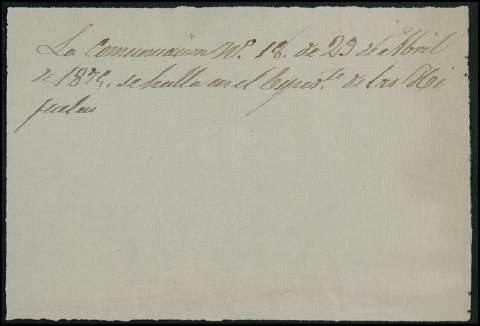 La Comunicacion Nº. 18. de 23 de Abril
de 1875. se halla en el Exped.te de las